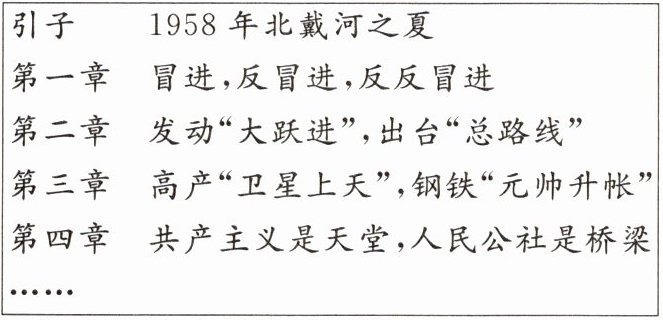 引子 1958年北戴河之夏
第一章 冒进,反冒进,反反冒进
第二章 发动“大跃进”,出台“总路线”
第三章 高产“卫星上天”,钢铁“元帅升帐”
第四章 共产主义是天堂,人民公社是桥梁
……